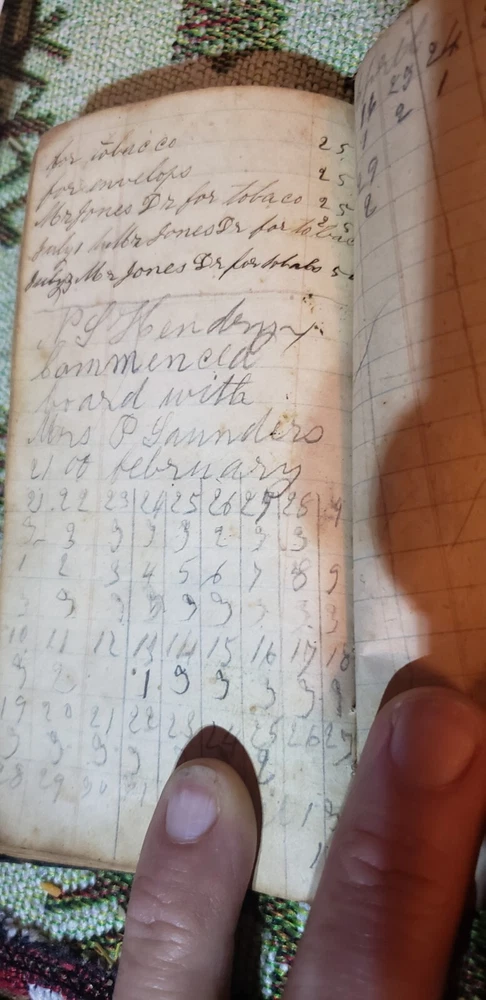 for tobacco 25
for envelops 25
Mr Jones Dr for tobaco 25
July 1 Mr Jones Dr for tobac 25
July 3 Mr Jones Dr for tobabo 5
P S Hendry
Commencid
board with
Mrs P Saunders
21 of february
21 22 23 24 25 26 27 28
3 3 3 3 3 2 3 3
1 2 3 4 5 6 7 8 9
3 3 3 3 3 3 3 3 3
10 11 12 13 14 15 16 17 18
3 3 1 3 3 3 3 3
19 20 21 22 23 24 25 26 27
3 3 3 3 2
28 29 30 31
1 3
16 23 24
1 2 1
29
2